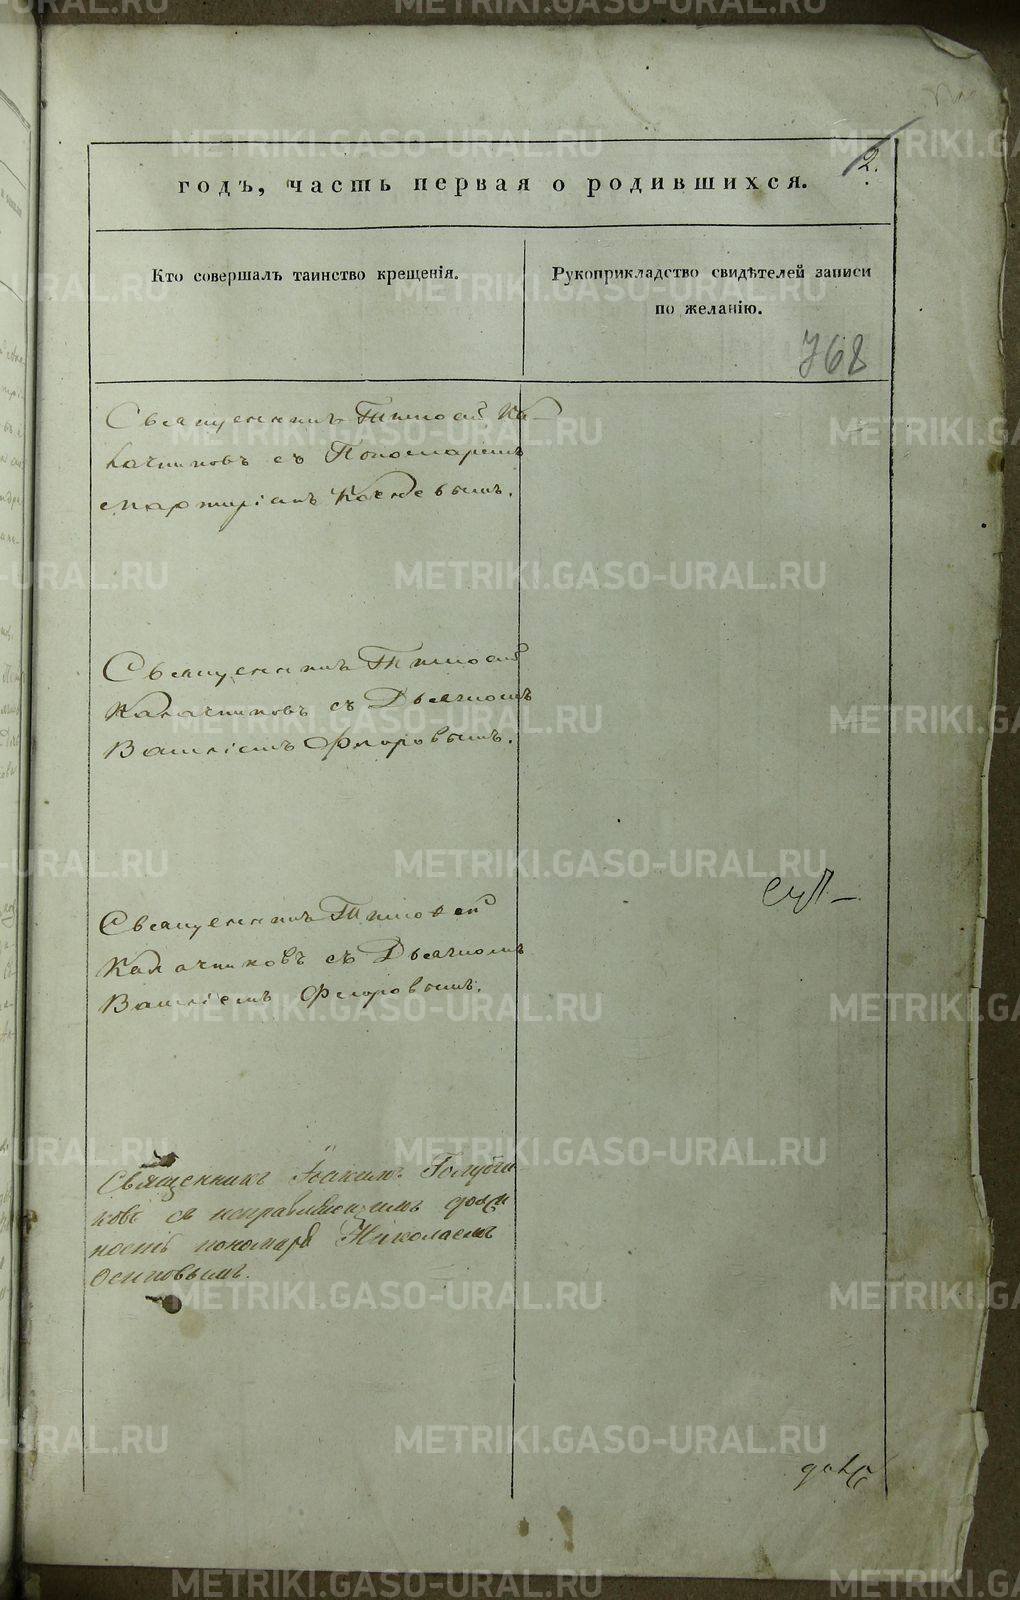 2.
годъ, часть первая о родившихся.
Кто совершалъ таинство крещенія.
Рукоприкладство свидѣтелей записи
по желанію.
768
Священникъ Тимоѳей Ка-
лачниковъ съ Пономаремъ
Мартиріемъ
Священникъ Тимоѳей
Калачниковъ съ Дьячкомъ
Василіемъ Флоровымъ.
Священникъ Тимоѳей
Калачниковъ съ Дьячкомъ
Василіемъ Флоровымъ.
Священникъ Іоакимъ
ковъ съ исправляющимъ долж
ность пономаря Николаемъ
Осиповымъ.
METRIKI.GASO-URAL.RU